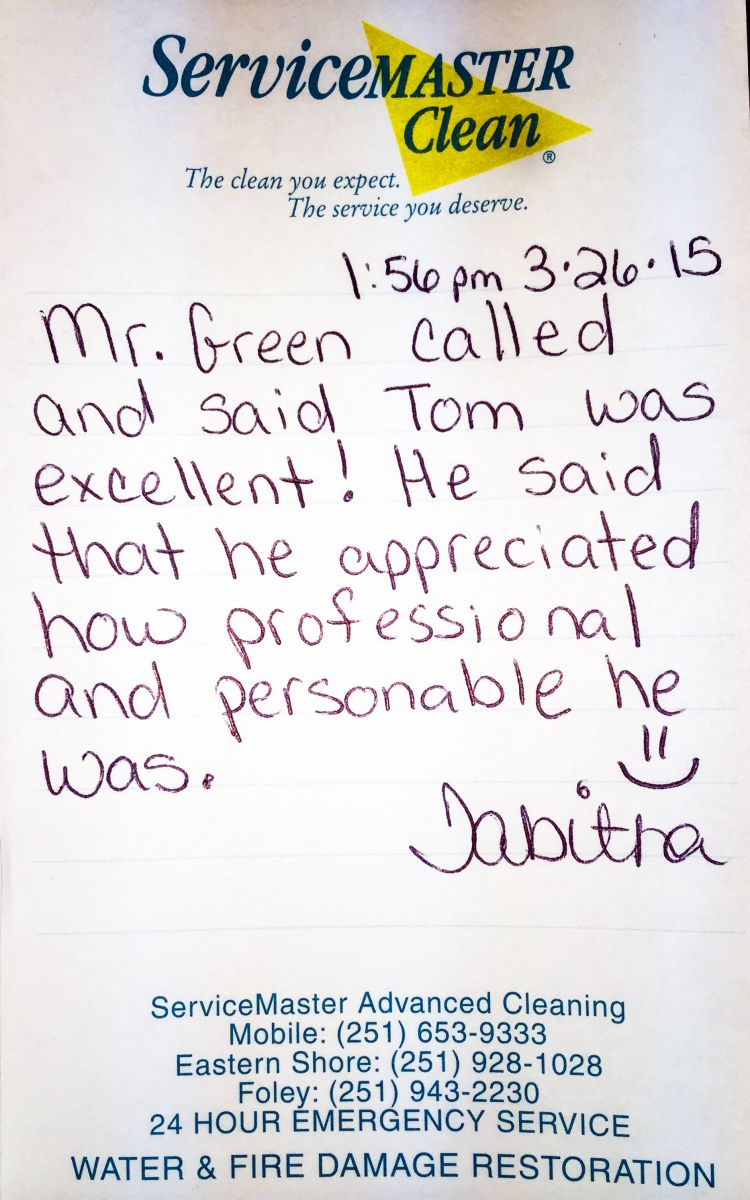 ServiceMASTER
Clean®
The clean you expect.
The service you deserve.
1:56pm 3.26.15
Mr. Green called
and said Tom was
excellent! He said
that he appreciated
how professional
and personable he
was.
Tabitha
ServiceMaster Advanced Cleaning
Mobile: (251) 653-9333
Eastern Shore: (251) 928-1028
Foley: (251) 943-2230
24 HOUR EMERGENCY SERVICE
WATER & FIRE DAMAGE RESTORATION